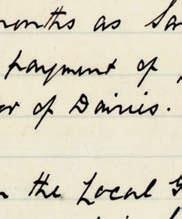 months as Sa
payment of
or of Dairies.
the Local G